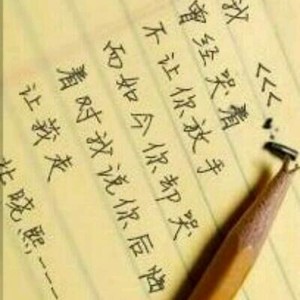 <<<
我
曾经哭着
不让你放手
而如今你却哭
着对我说你后悔
让莪走
晓熙----